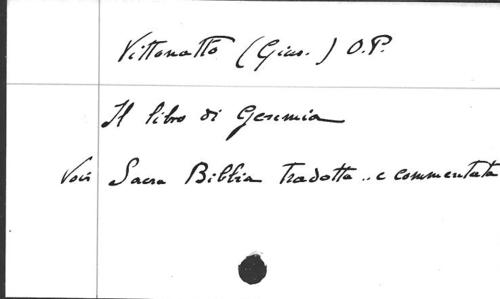 Vittonatto (Gius.) O.P.
Il libro di Geremia
Voir Sacra Bibbia tradotta .. e commentata